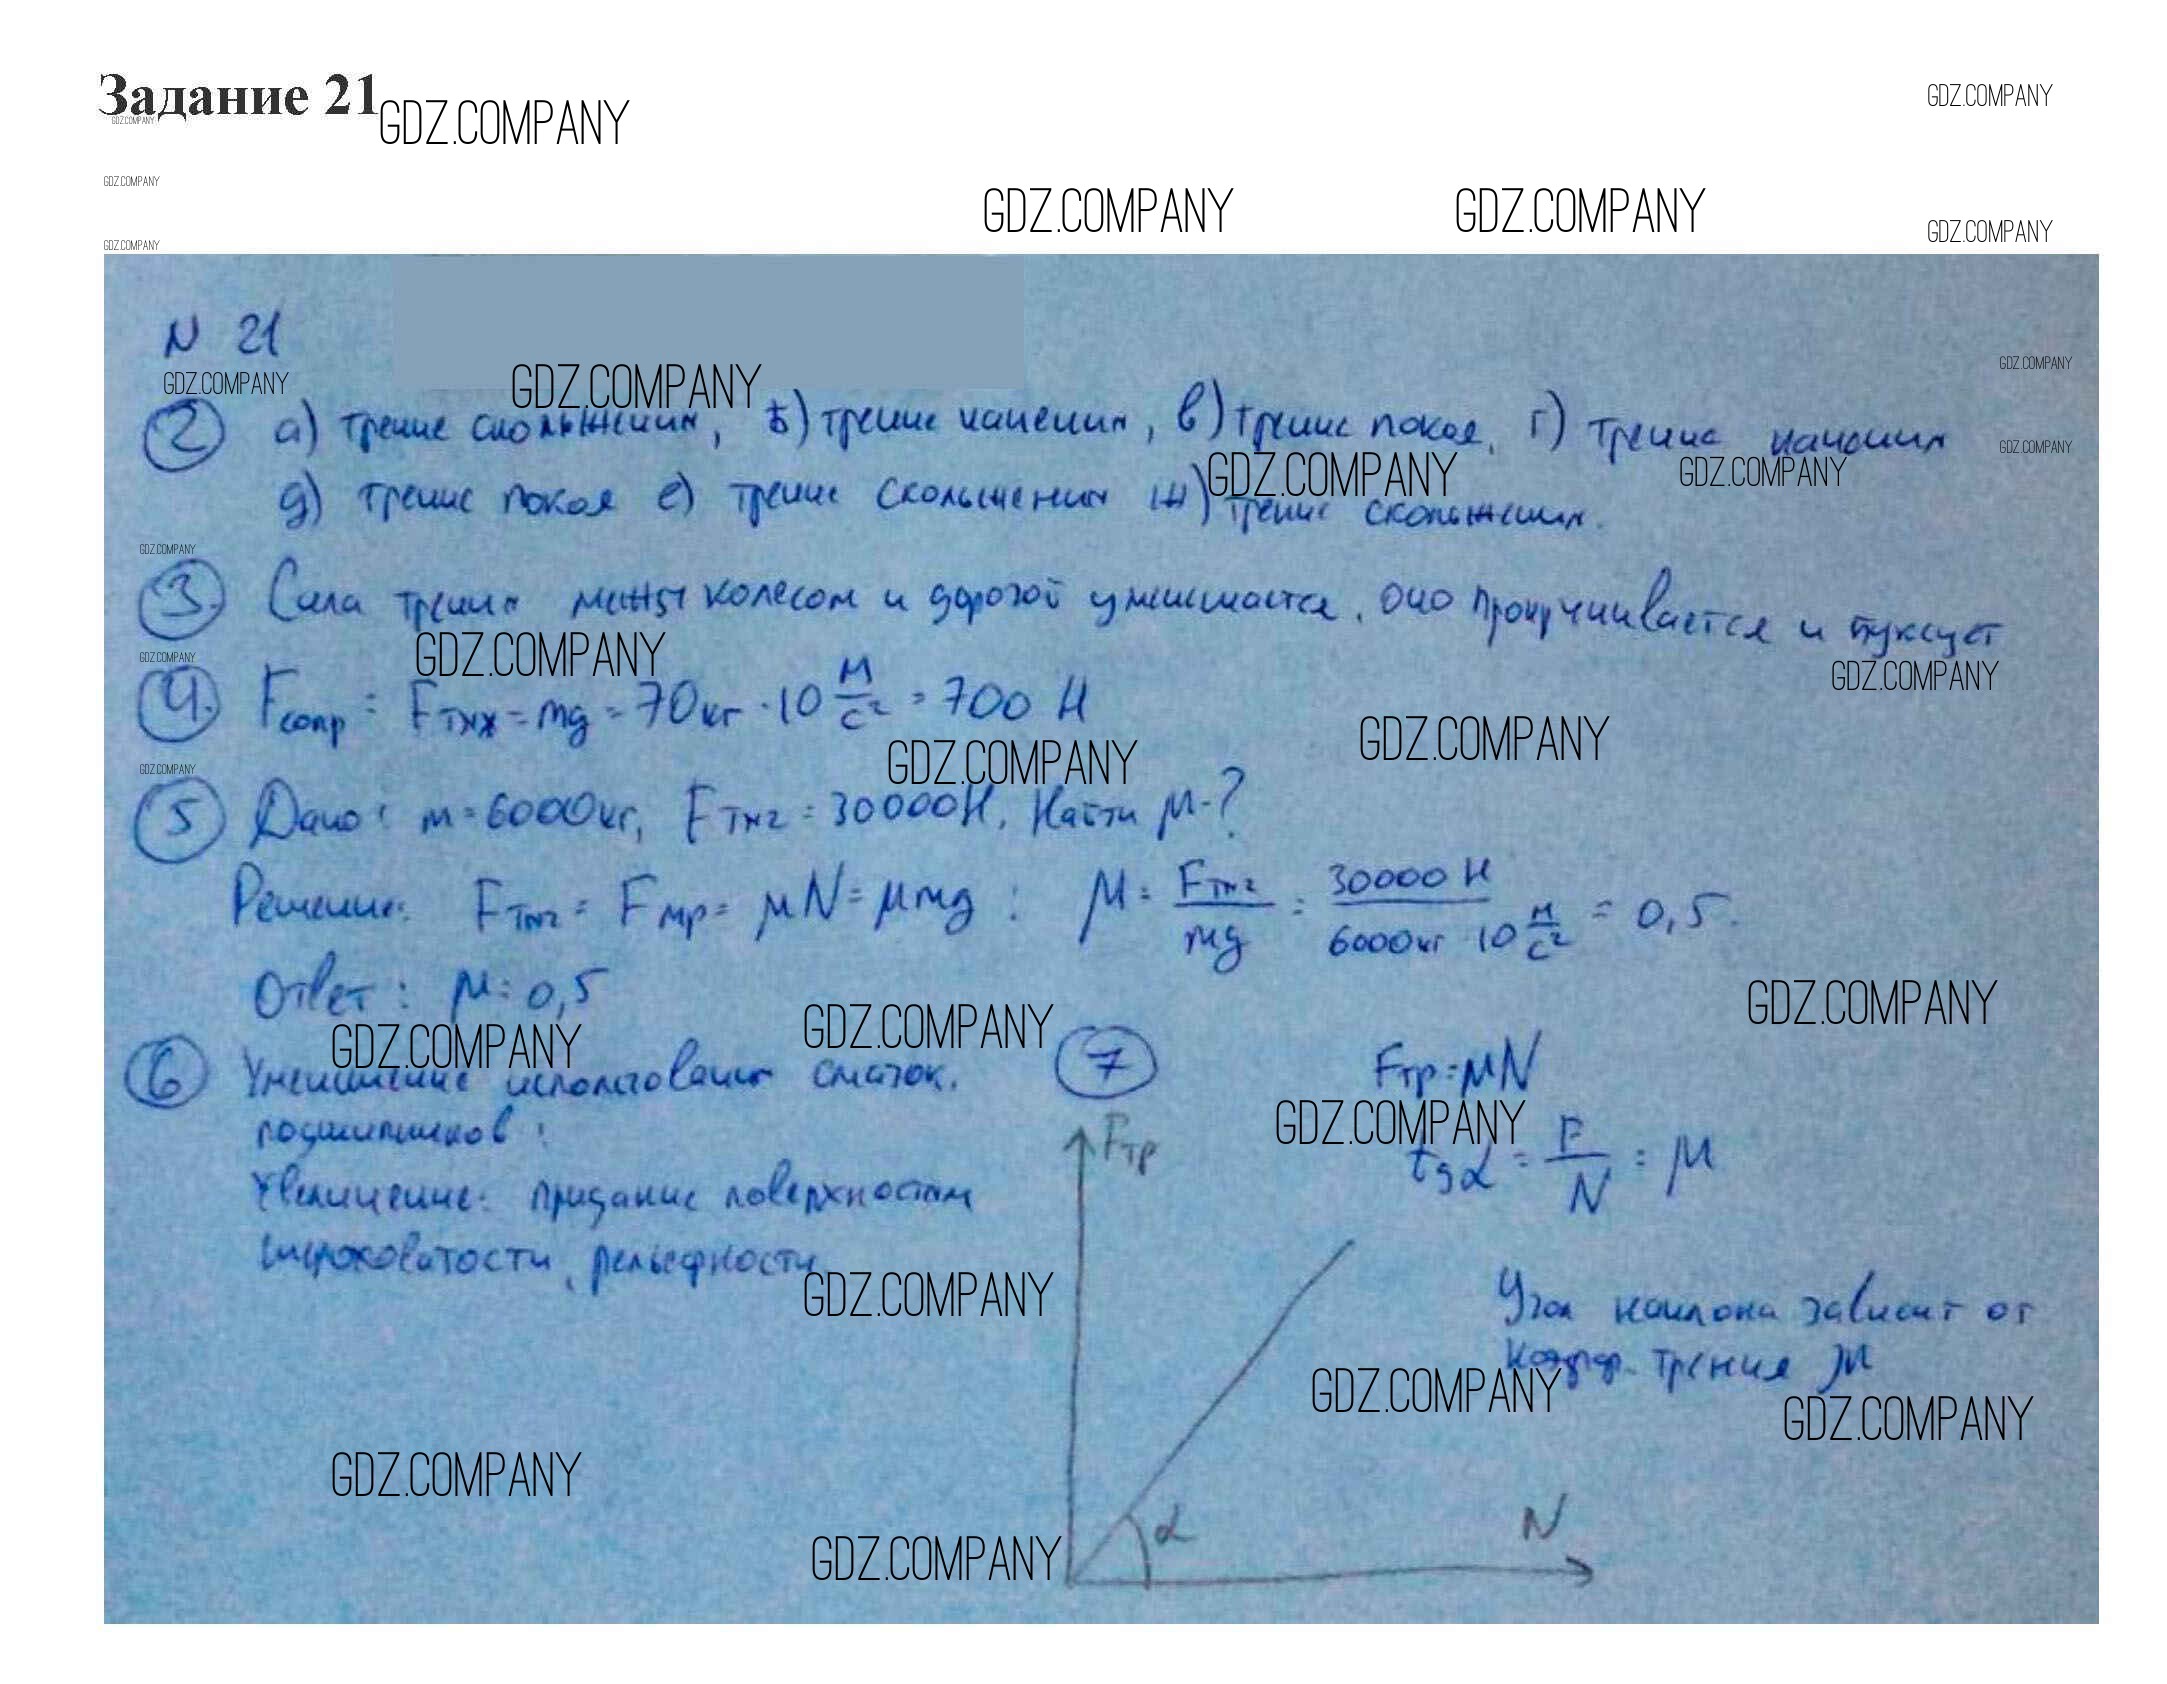 Задание 21
GDZ.COMPANY
GDZ.COMPANY
GDZ.COMPANY
GDZ.COMPANY
GDZ.COMPANY
GDZ.COMPANY
GDZ.COMPANY
GDZ.COMPANY
N 21
GDZ.COMPANY
GDZ.COMPANY
GDZ.COMPANY
② а) трение скольжения, б) трение качения, в) трение покоя, г) трение качения
GDZ.COMPANY
GDZ.COMPANY
GDZ.COMPANY
д) трение покоя е) трение скольжения ж) трение скольжения.
GDZ.COMPANY
③. Сила трения между колесом и дорогой уменьшается. оно прокручивается и буксует
GDZ.COMPANY
GDZ.COMPANY
GDZ.COMPANY
④. Fсопр = Fтяж = mg = 70кг · 10 м/с² = 700 Н
GDZ.COMPANY
GDZ.COMPANY
GDZ.COMPANY
⑤ Дано: m = 6000кг, Fтяг = 30000Н, Найти μ-?
Решение: Fтяг = Fтр = μN = μmg : μ = Fтяг/mg = 30000 Н/6000кг · 10 м/с² = 0,5.
Ответ: μ = 0,5
GDZ.COMPANY
GDZ.COMPANY
GDZ.COMPANY
⑥ Уменьшение использования смазок,
подшипников:
Увеличение: придание поверхностям
шероховатости, рельефности
GDZ.COMPANY
⑦
Fтр = μN
GDZ.COMPANY
tgα = F/N = μ
Fтр
Угол наклона зависит от
коэфф. трения μ
GDZ.COMPANY
GDZ.COMPANY
GDZ.COMPANY
α
N
GDZ.COMPANY